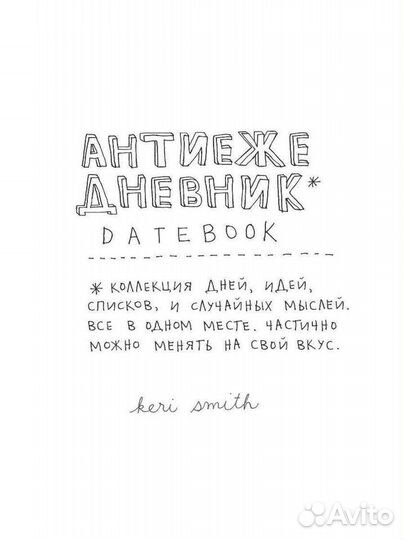 АНТИЕЖЕ
ДНЕВНИК*
DATEBOOK
* КОЛЛЕКЦИЯ ДНЕЙ, ИДЕЙ,
СПИСКОВ, И СЛУЧАЙНЫХ МЫСЛЕЙ.
ВСЕ В ОДНОМ МЕСТЕ. ЧАСТИЧНО
МОЖНО МЕНЯТЬ НА СВОЙ ВКУС.
keri smith
Avito